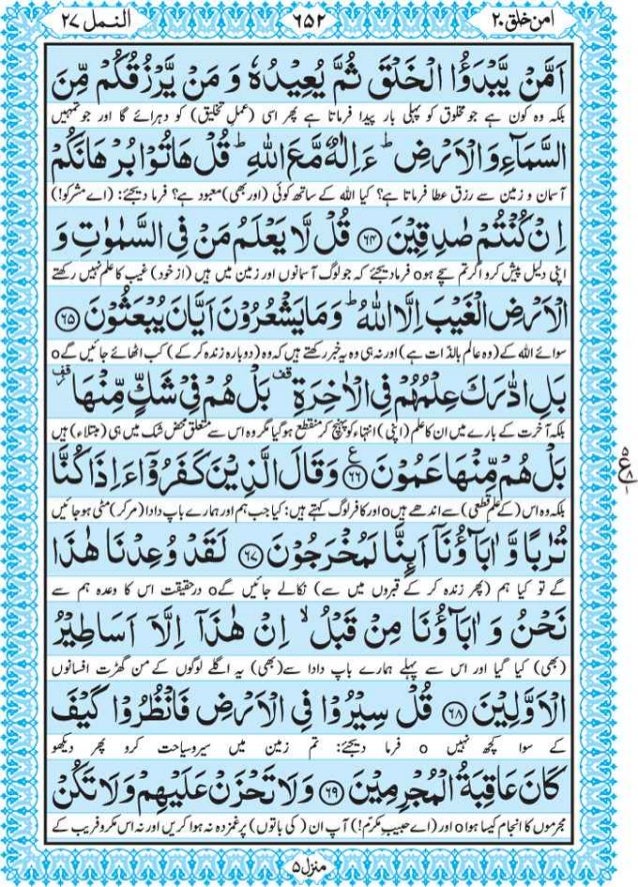 امن خلق ۲۰ ۶۵۲ النمل ۲۷
اَمَّنْ يَّبْدَؤُا الْخَلْقَ ثُمَّ يُعِيْدُهٗ وَ مَنْ يَّرْزُقُكُمْ مِّنَ
بلکہ وہ کون ہے جو مخلوق کو پہلی بار پیدا فرماتا ہے پھر اسی (عملِ تخلیق) کو دہرائے گا اور جو تمہیں
السَّمَآءِ وَ الْاَرْضِ ؕ ءَاِلٰهٌ مَّعَ اللّٰهِ ؕ قُلْ هَاتُوْا بُرْهَانَكُمْ
آسمان و زمین سے رزق عطا فرماتا ہے؟ کیا اللہ کے ساتھ کوئی (اور بھی) معبود ہے؟ فرما دیجئے: (اے مشرکو!)
اِنْ كُنْتُمْ صٰدِقِيْنَ ﴿۶۴﴾ قُلْ لَّا يَعْلَمُ مَنْ فِی السَّمٰوٰتِ وَ
اپنی دلیل پیش کرو اگر تم سچے ہو o فرما دیجئے کہ جو لوگ آسمانوں اور زمین میں ہیں (از خود) غیب کا علم نہیں رکھتے
الْاَرْضِ الْغَيْبَ اِلَّا اللّٰهُ ؕ وَ مَا يَشْعُرُوْنَ اَيَّانَ يُبْعَثُوْنَ ﴿۶۵﴾
سوائے اللہ کے (وہ عالم بالذات ہے) اور نہ ہی وہ یہ خبر رکھتے ہیں کہ وہ (دوبارہ زندہ کر کے) کب اٹھائے جائیں گے o
بَلِ ادّٰرَكَ عِلْمُهُمْ فِی الْاٰخِرَةِ قف بَلْ هُمْ فِیْ شَكٍّ مِّنْهَا قف
بلکہ آخرت کے بارے میں ان کا علم (اپنی) انتہاء کو پہنچ کر منقطع ہوگیا مگر وہ اس سے متعلق محض شک میں ہی (مبتلاء) ہیں
بَلْ هُمْ مِّنْهَا عَمُوْنَ ﴿۶۶﴾ ع وَ قَالَ الَّذِيْنَ كَفَرُوْۤا ءَاِذَا كُنَّا
بلکہ وہ اس (کے علمِ قطعی) سے اندھے ہیں o اور کافر لوگ کہتے ہیں: کیا جب ہم اور ہمارے باپ دادا (مر کر) مٹی ہو جائیں
تُرٰبًا وَّ اٰبَآؤُنَاۤ اَئِنَّا لَمُخْرَجُوْنَ ﴿۶۷﴾ لَقَدْ وُعِدْنَا هٰذَا
گے تو کیا ہم (پھر زندہ کر کے قبروں میں سے) نکالے جائیں گے o درحقیقت اس کا وعدہ ہم سے
نَحْنُ وَ اٰبَآؤُنَا مِنْ قَبْلُ ۙ اِنْ هٰذَاۤ اِلَّاۤ اَسَاطِيْرُ
(بھی) کیا گیا اور اس سے پہلے ہمارے باپ دادا سے (بھی) یہ اگلے لوگوں کے من گھڑت افسانوں
الْاَوَّلِيْنَ ﴿۶۸﴾ قُلْ سِيْرُوْا فِی الْاَرْضِ فَانْظُرُوْا كَيْفَ
کے سوا کچھ نہیں o فرما دیجئے: تم زمین میں سیر و سیاحت کرو پھر دیکھو
كَانَ عَاقِبَةُ الْمُجْرِمِيْنَ ﴿۶۹﴾ وَ لَا تَحْزَنْ عَلَيْهِمْ وَ لَا تَكُنْ
مجرموں کا انجام کیسا ہوا o اور (اے حبیبِ مکرّم!) آپ ان (کی باتوں) پر غمزدہ نہ ہوا کریں اور نہ اس مکر و فریب کے
منزل ۵